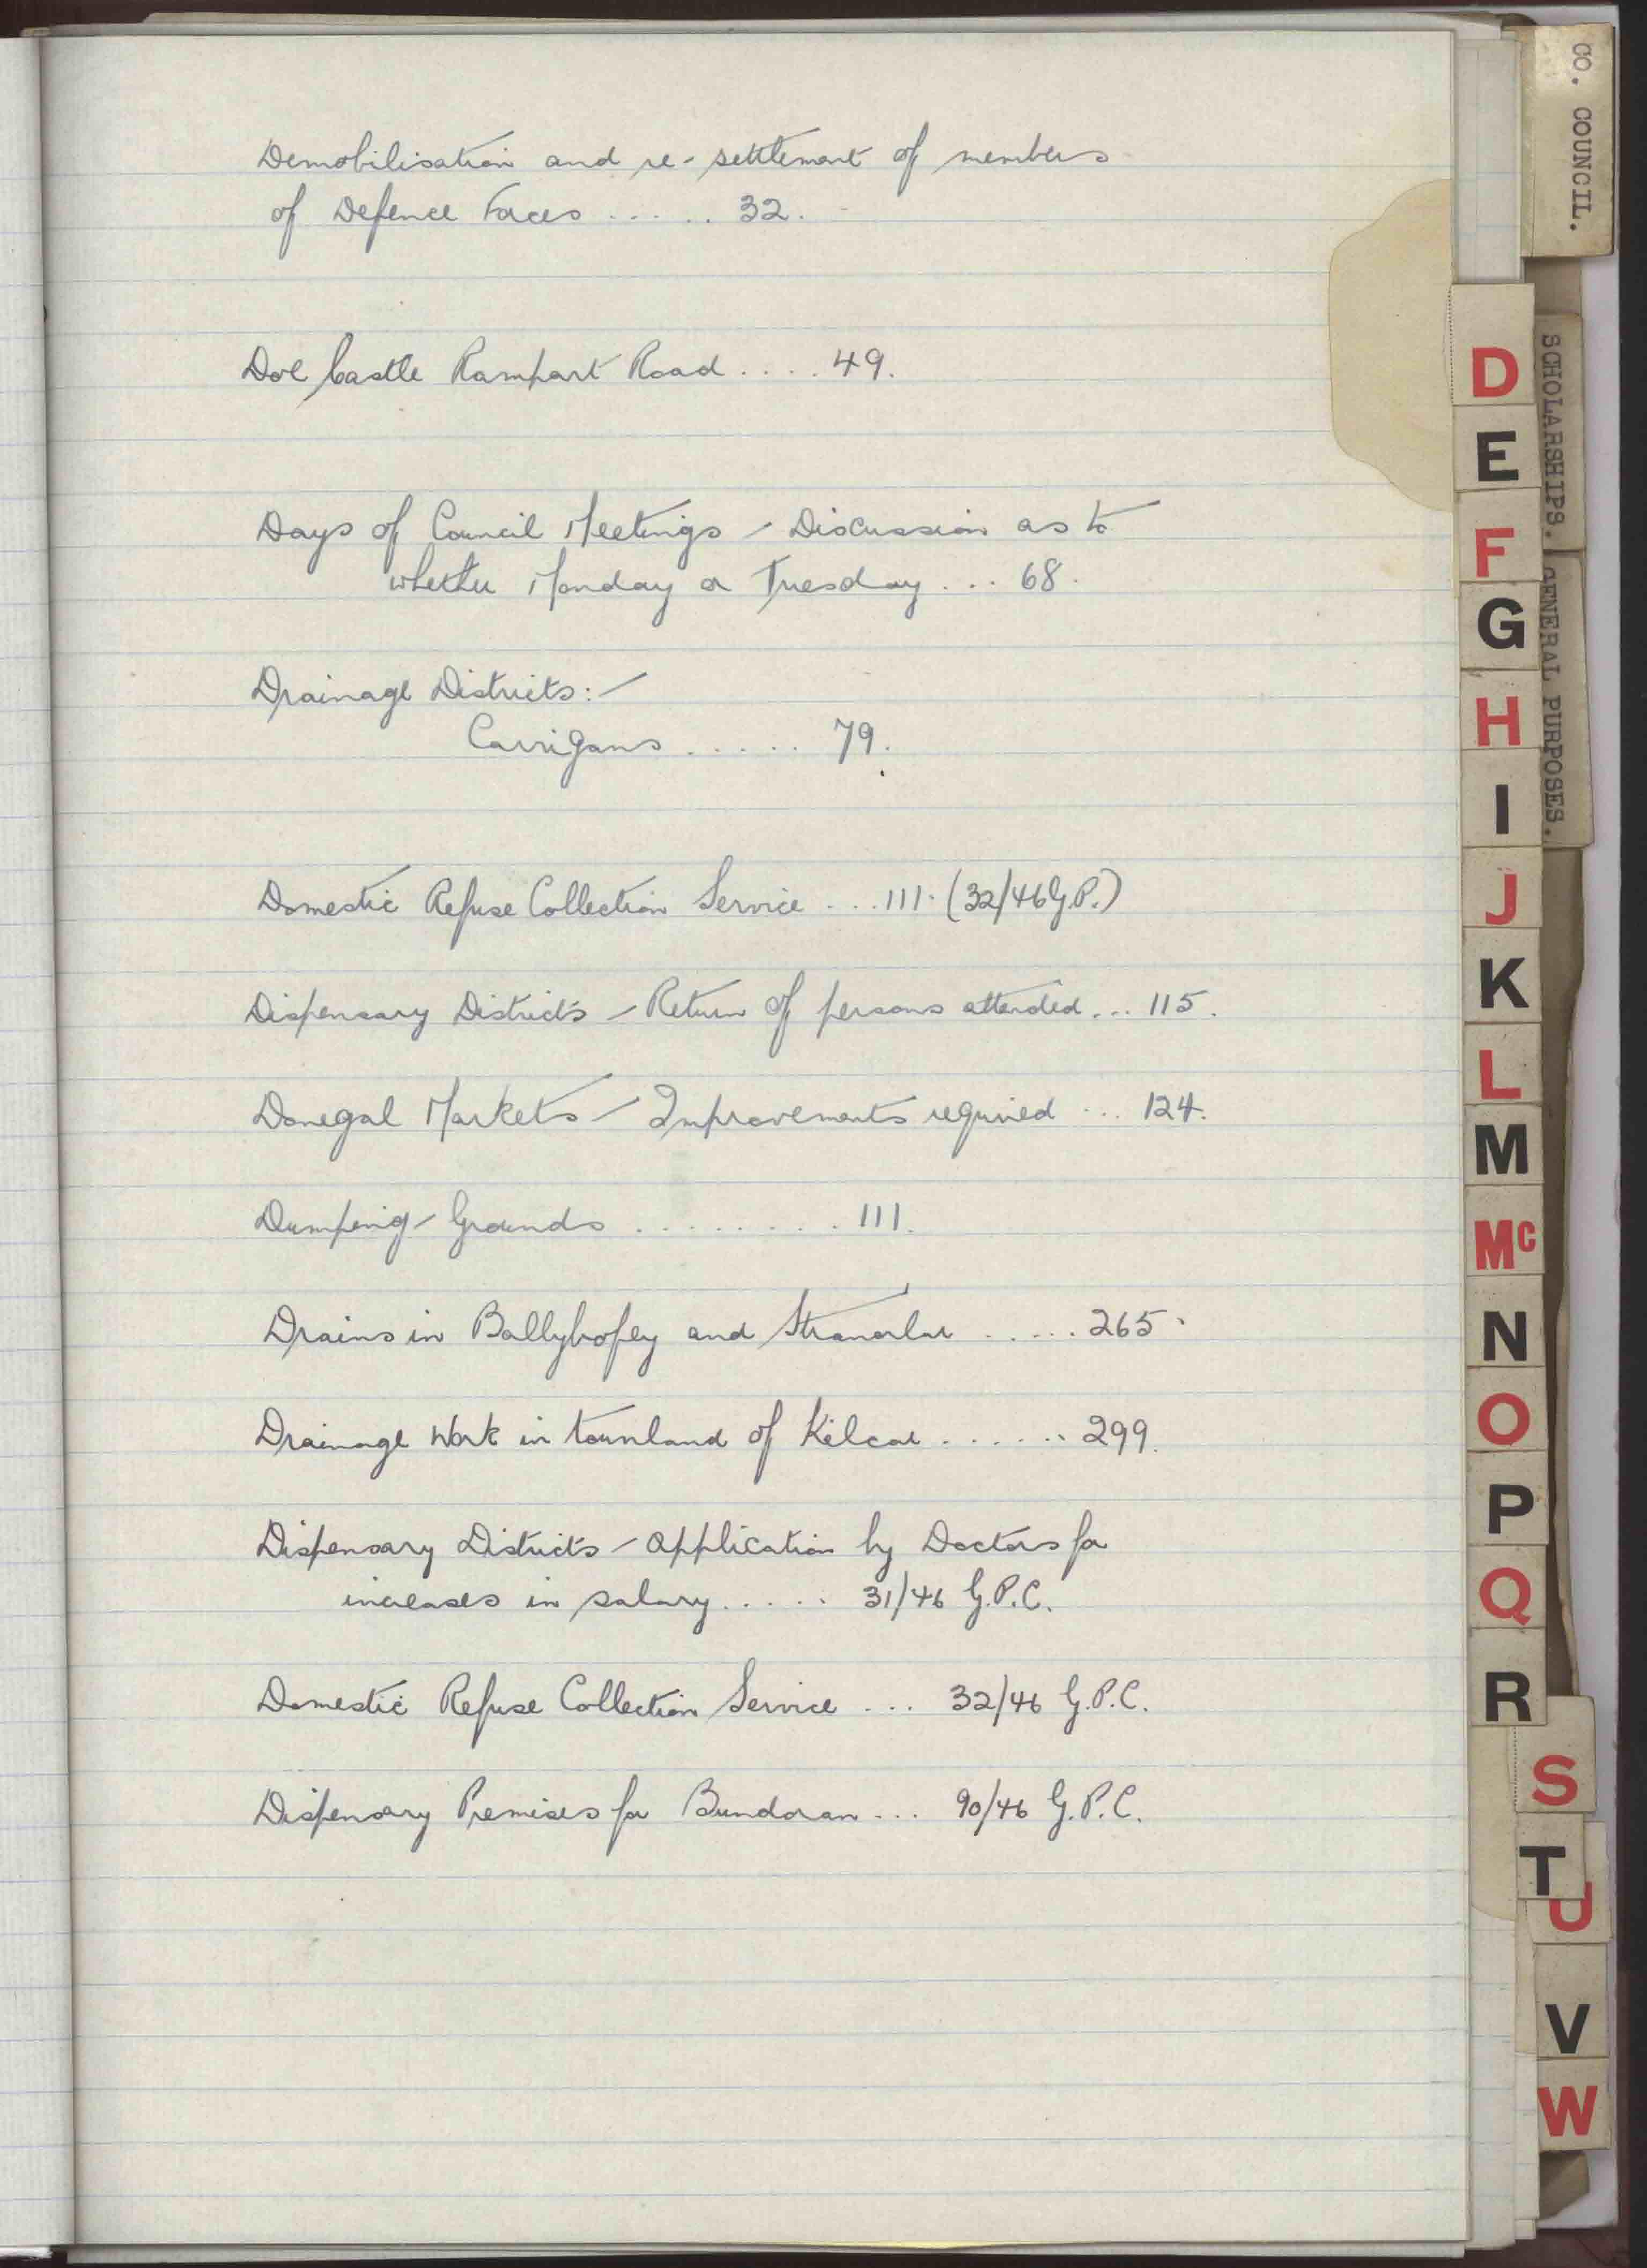 Demobilisation and re-settlement of members
of Defence Forces ...... 32.
Doe Castle Rampart Road .... 49.
Days of Council Meetings - Discussion as to
whether Monday or Tuesday ... 68.
Drainage Districts:-
Carrigans ...... 79.
Domestic Refuse Collection Service ... 111. (32/46 G.P.)
Dispensary Districts - Return of persons attended ... 115.
Donegal Markets - Improvements required ... 124.
Dumping-Grounds ......... 111.
Drains in Ballybofey and Stranorlar ..... 265.
Drainage Work in townland of Kilcar ...... 299.
Dispensary Districts - Application by Doctors for
increases in salary ..... 31/46 G.P.C.
Domestic Refuse Collection Service ... 32/46 G.P.C.
Dispensary Premises for Bundoran ... 90/46 G.P.C.
CO. COUNCIL.
SCHOLARSHIPS.
GENERAL PURPOSES.
D
E
F
G
H
I
J
K
L
M
Mc
N
O
P
Q
R
S
T
U
V
W